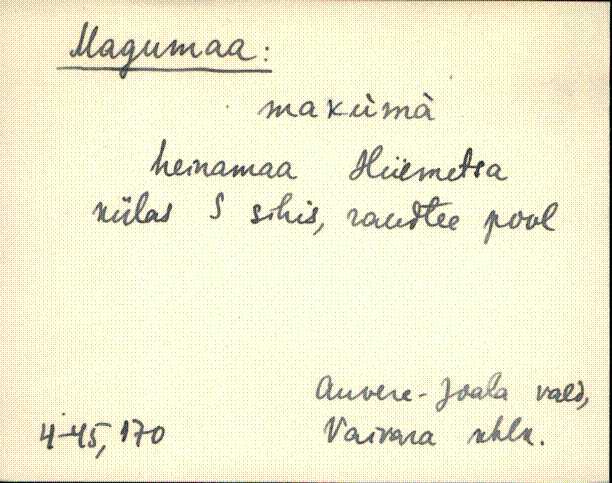 Magumaa:
makùmà
heinamaa Hiiemetsa
külas S sihis, raudtee pool
Auvere-Joala vald,
4-45, 170 Vaivara khlk.